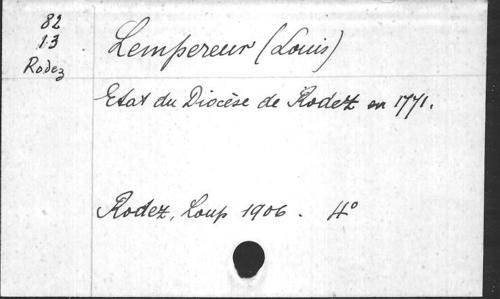 82
13
Rodez
Lempereur (Louis)
Etat du Diocèse de Rodez en 1771.
Rodez, Loup 1906. 4°